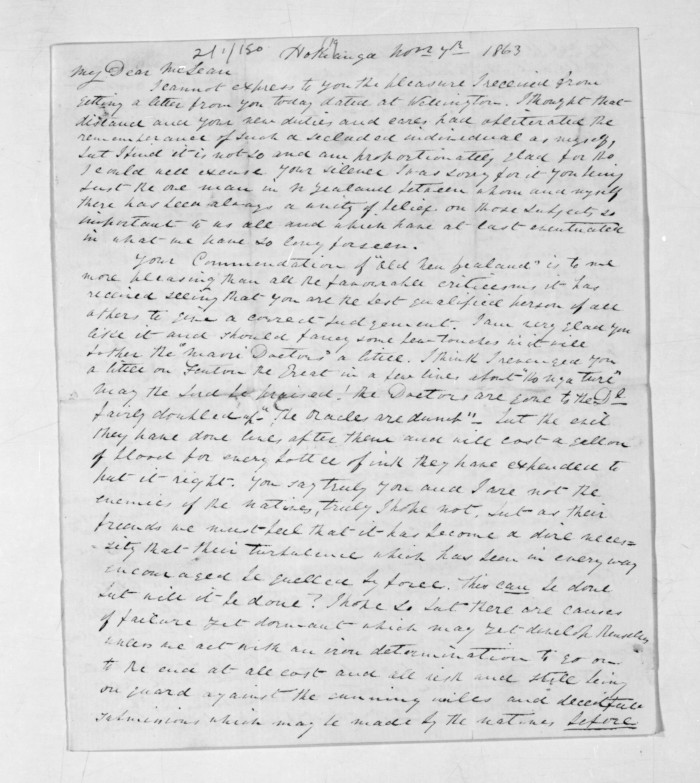 21/1/150 Hokianga Novr 7th 1863
My Dear McLean
I cannot express to you the pleasure I received from
getting a letter from you today dated at Wellington. I thought that
distance and your new duties and cares had obliterated the
rememberance of such a secluded individual as myself,
but I find it is not so and am proportionately glad for tho
I could well excuse your silence I was sorry for it you being
just the one man in N Zealand between whom and myself
there has been always a unity of belief on those subjects so
important to us all and which have at last eventuated
in what we have so long forseen.
Your Commendation of "Old New Zealand" is to me
more pleasing than all the favourable criticisms it has
received seeing that you are the best qualified person of all
others to give a correct judgement. I am very glad you
like it and should fancy some few touches in it will
bother the "Maori Doctors" a little. I think I revenged you
a little on Fenton the Great in a few lines about "Ko nga ture"
May the Lord be praised! the Doctors are gone to the Dl
fairly doubled up "the Oracles are dumb" - but the evil
they have done lives after them and will cost a gallon
of blood for every bottle of ink they have expended to
put it right. You say truly you and I are not the
enemies of the natives, truly I hope not, but as their
friends we must feel that it has become a dire neces=
sity that their turbulence which has been in every way
encouraged be quelled by force. This can be done
but will it be done? I hope so but there are causes
of failure yet dormant which may yet develop themselves
unless we act with an iron determination to go on
to the end at all cost and all risk and still being
on guard against the cunning wiles and deceitfull
submissions which may be made by the natives before